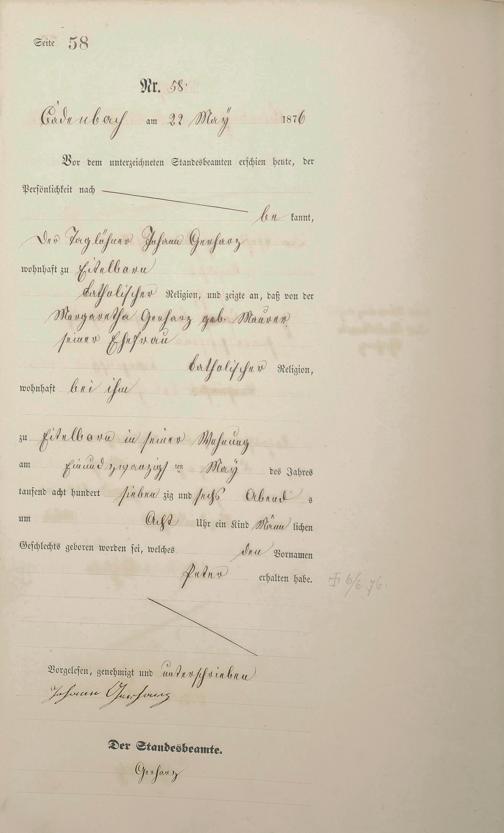 Seite 58
Nr. 58.
Cadenbach am 22 May 1876
Vor dem unterzeichneten Standesbeamten erschien heute, der
Persönlichkeit nach
be kannt,
der Taglöhner Johann Gerharz
wohnhaft zu Eitelborn
katholischer Religion, und zeigte an, daß von der
Margaretha Gerharz geb. Maurer
seiner Ehefrau
katholischer Religion,
wohnhaft bei ihm
zu Eitelborn in seiner Wohnung
am Einund zwanzigsten May des Jahres
tausend acht hundert sieben zig und sechs Abend s
um Acht Uhr ein Kind Männ lichen
Geschlechts geboren worden sei, welches den Vornamen
Peter erhalten habe.
† 6/6 76
Vorgelesen, genehmigt und unterschrieben
Johann Gerharz
Der Standesbeamte.
Gerharz